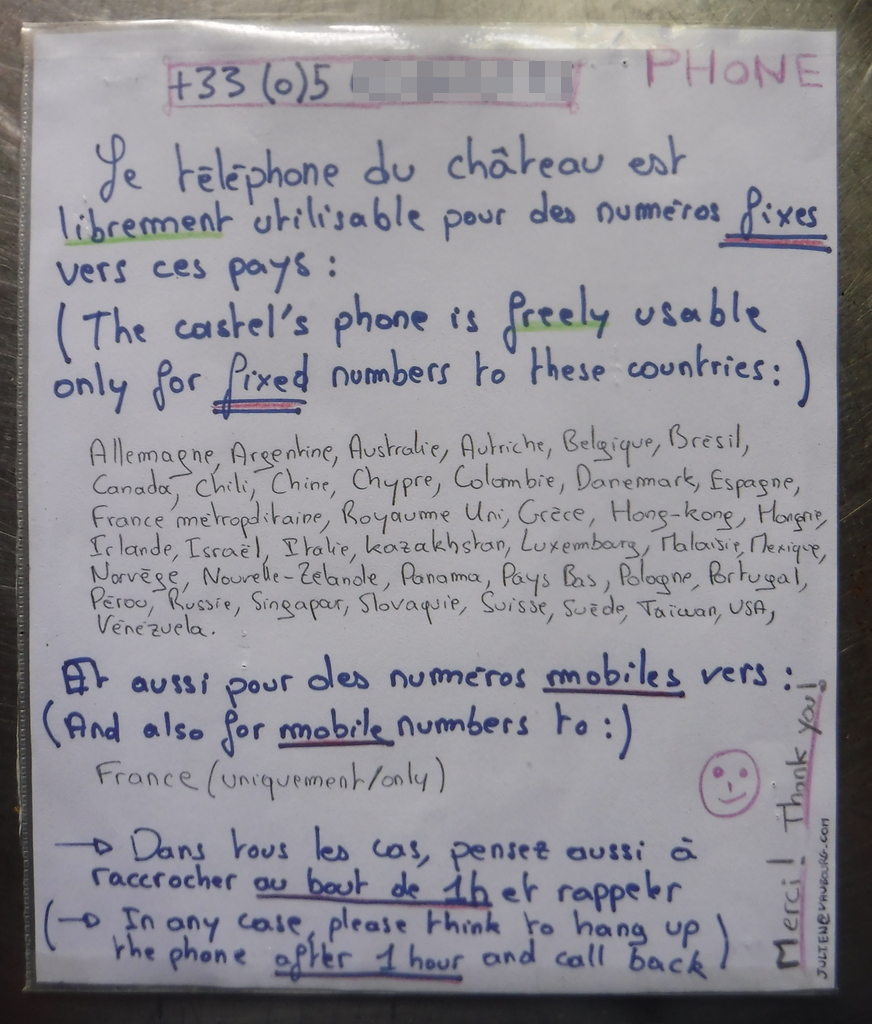 +33 (0)5
PHONE
Le téléphone du château est
librement utilisable pour des numéros fixes
vers ces pays :
(The castel's phone is freely usable
only for fixed numbers to these countries:)
Allemagne, Argentine, Australie, Autriche, Belgique, Brésil,
Canada, Chili, Chine, Chypre, Colombie, Danemark, Espagne,
France métropolitaine, Royaume Uni, Grèce, Hong-kong, Hongrie,
Irlande, Israël, Italie, Kazakhstan, Luxembourg, Malaisie, Mexique,
Norvège, Nouvelle-Zélande, Panama, Pays Bas, Pologne, Portugal,
Pérou, Russie, Singapour, Slovaquie, Suisse, Suède, Taïwan, USA,
Vénézuela.
Et aussi pour des numéros mobiles vers :
(And also for mobile numbers to :)
France (uniquement/only)
→ Dans tous les cas, pensez aussi à
raccrocher au bout de 1h et rappeler
(→ In any case, please think to hang up
the phone after 1 hour and call back)
Merci! Thank you!
JULIEN@VAUBOURG.COM